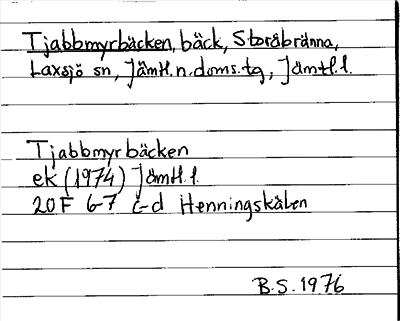 Tjabbmyrbäcken, bäck, Storåbränna,
Laxsjö sn, Jämtl.n.doms.tg, Jämtl.l.
Tjabbmyrbäcken
ek (1974) Jämtl.l.
20F 6-7 c-d Henningskälen
B.S. 1976